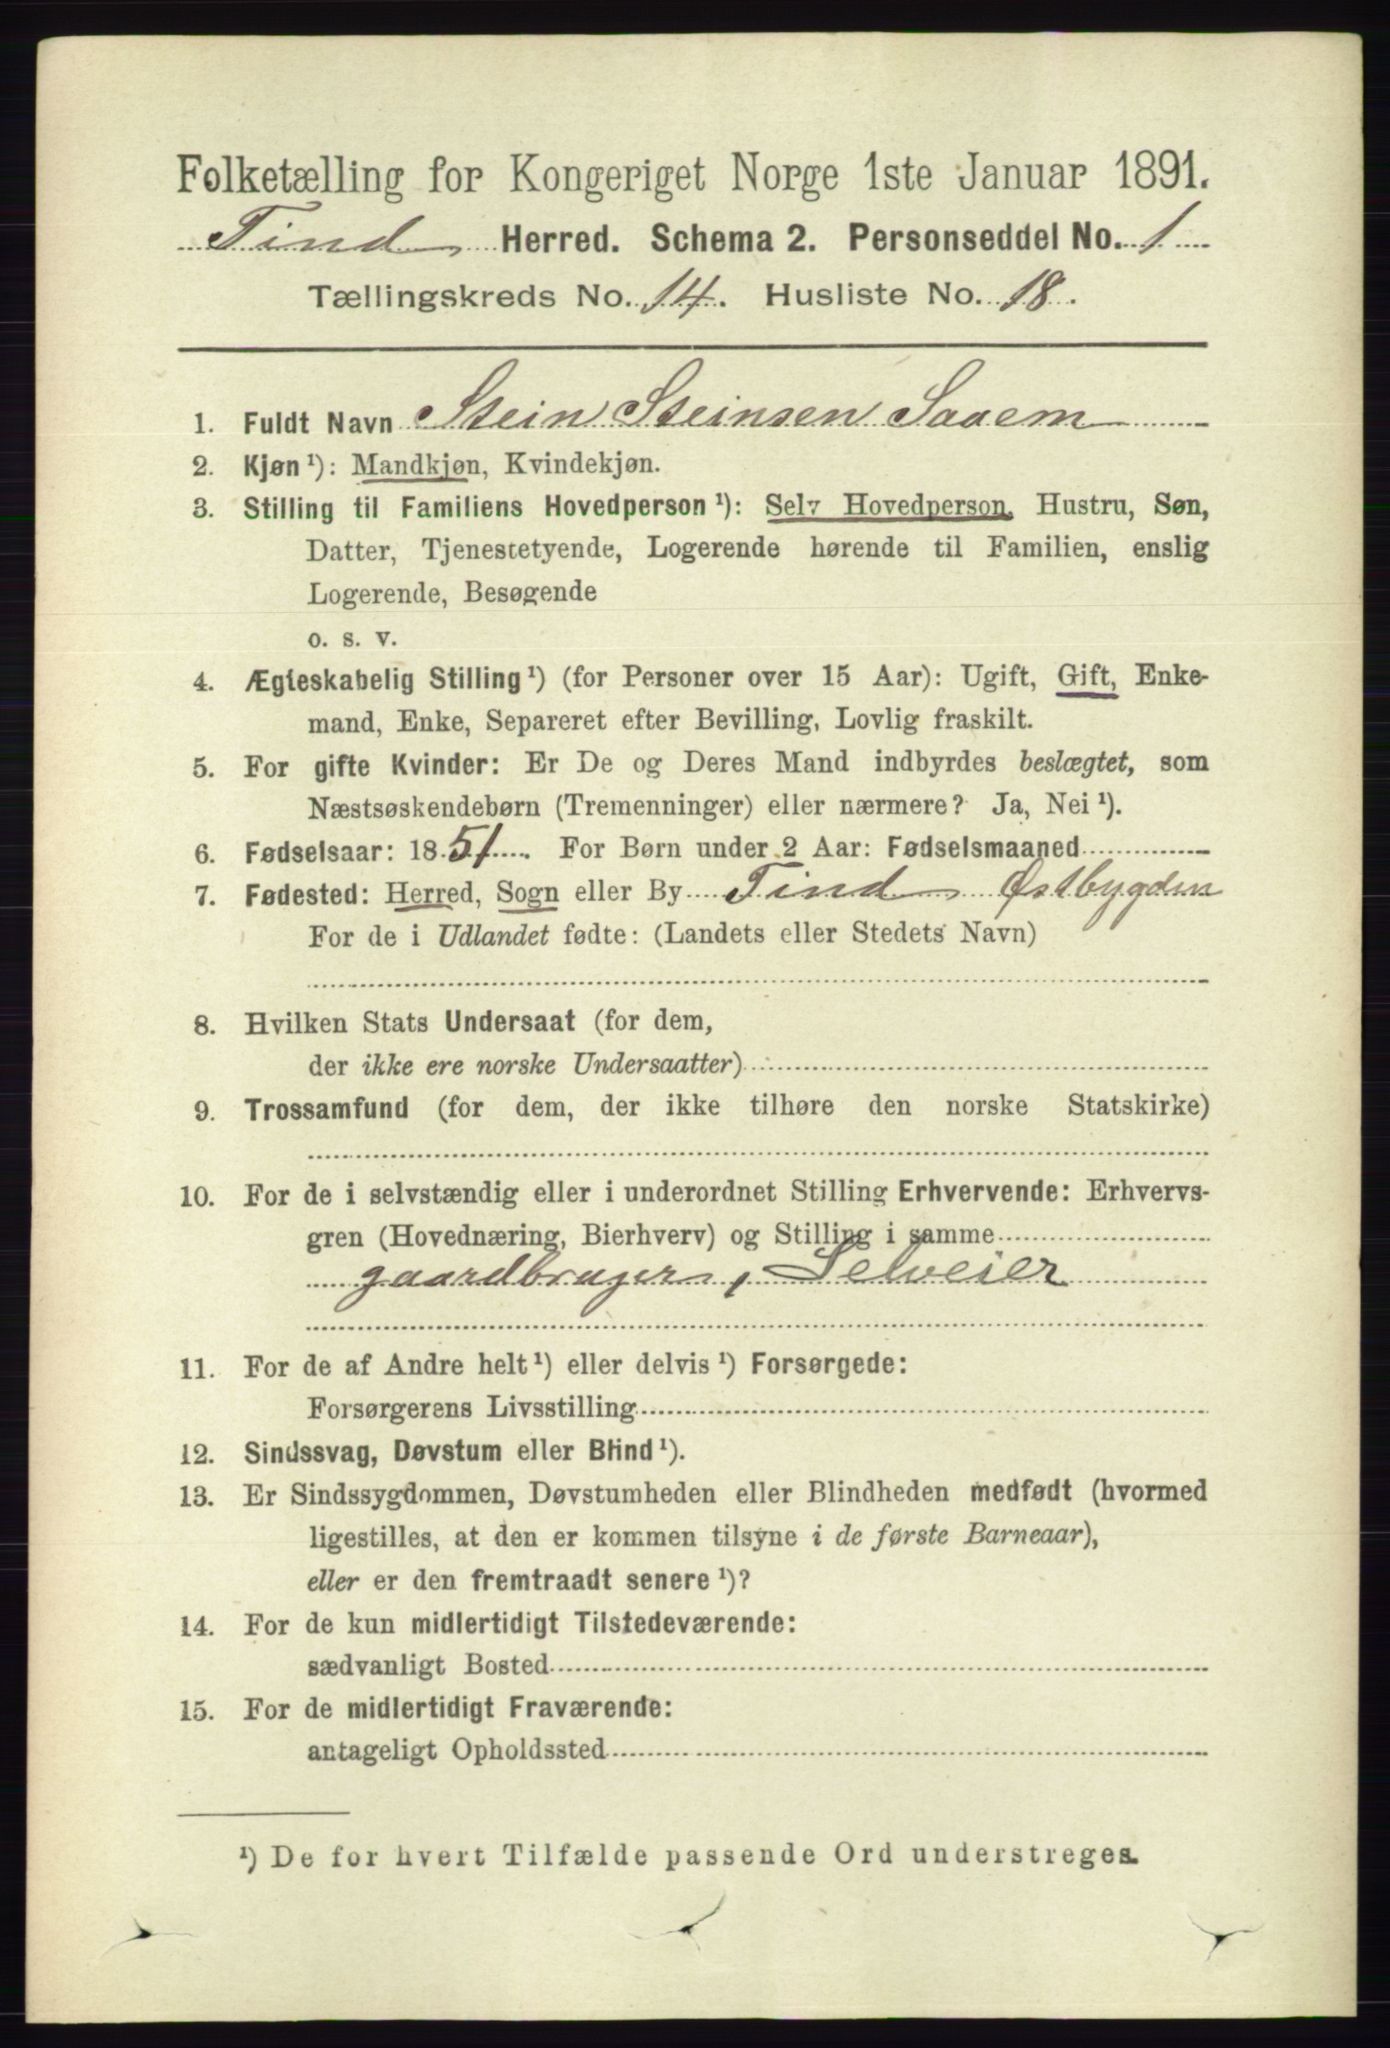 Folketælling for Kongeriget Norge 1ste Januar 1891.
Tind Herred. Schema 2. Personseddel No. 1
Tællingskreds No. 14. Husliste No. 18.
1. Fuldt Navn Stein Steinsen Saaem
2. Kjøn ¹): Mandkjøn, Kvindekjøn.
3. Stilling til Familiens Hovedperson ¹): Selv Hovedperson, Hustru, Søn,
Datter, Tjenestetyende, Logerende hørende til Familien, enslig
Logerende, Besøgende
o. s. v.
4. Ægteskabelig Stilling ¹) (for Personer over 15 Aar): Ugift, Gift, Enke-
mand, Enke, Separeret efter Bevilling, Lovlig fraskilt.
5. For gifte Kvinder: Er De og Deres Mand indbyrdes beslægtet, som
Næstsøskendebørn (Tremenninger) eller nærmere? Ja, Nei ¹).
6. Fødselsaar: 1851. For Børn under 2 Aar: Fødselsmaaned
7. Fødested: Herred, Sogn eller By Tind Østbygden
For de i Udlandet fødte: (Landets eller Stedets Navn)
8. Hvilken Stats Undersaat (for dem,
der ikke ere norske Undersaatter)
9. Trossamfund (for dem, der ikke tilhøre den norske Statskirke)
10. For de i selvstændig eller i underordnet Stilling Erhvervende: Erhvervs-
gren (Hovednæring, Bierhverv) og Stilling i samme
gaardbruger, Selveier
11. For de af Andre helt ¹) eller delvis ¹) Forsørgede:
Forsørgerens Livsstilling
12. Sindssvag, Døvstum eller Blind ¹).
13. Er Sindssygdommen, Døvstumheden eller Blindheden medfødt (hvormed
ligestilles, at den er kommen tilsyne i de første Barneaar),
eller er den fremtraadt senere ¹)?
14. For de kun midlertidigt Tilstedeværende:
sædvanligt Bosted
15. For de midlertidigt Fraværende:
antageligt Opholdssted
¹) De for hvert Tilfælde passende Ord understreges.